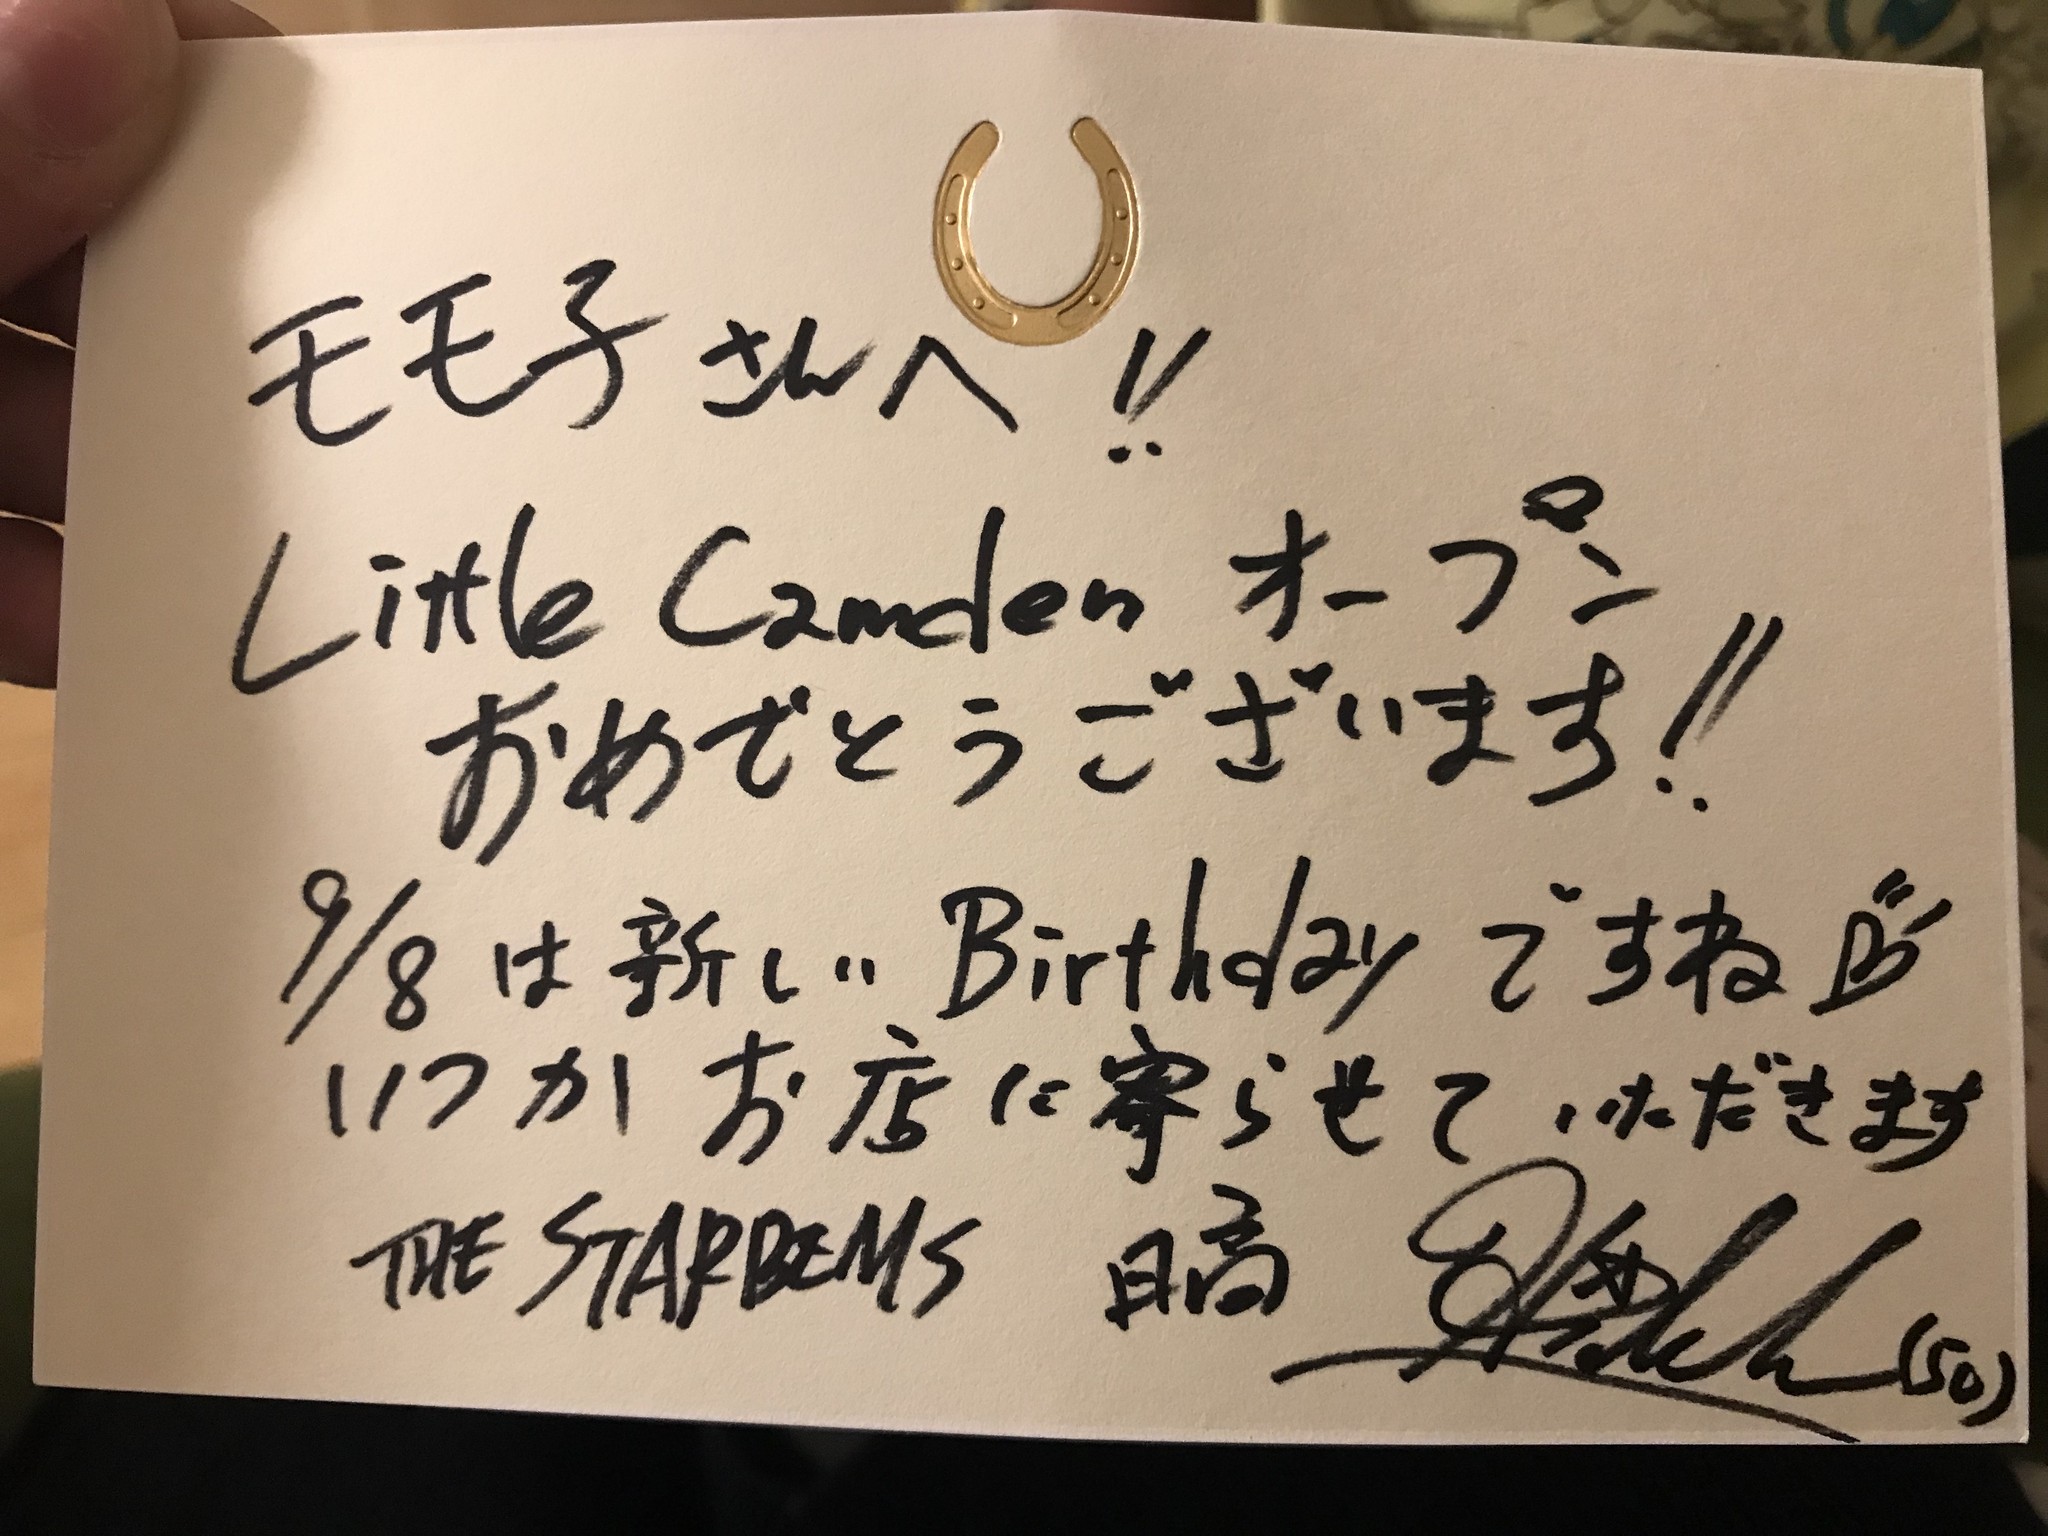 モモ子さんへ!!
Little Camden オープン
おめでとうございます!!
9/8は新しいBirthdayですね
いつかお店に寄らせていただきます
THE STARBEMS 日高
(50)